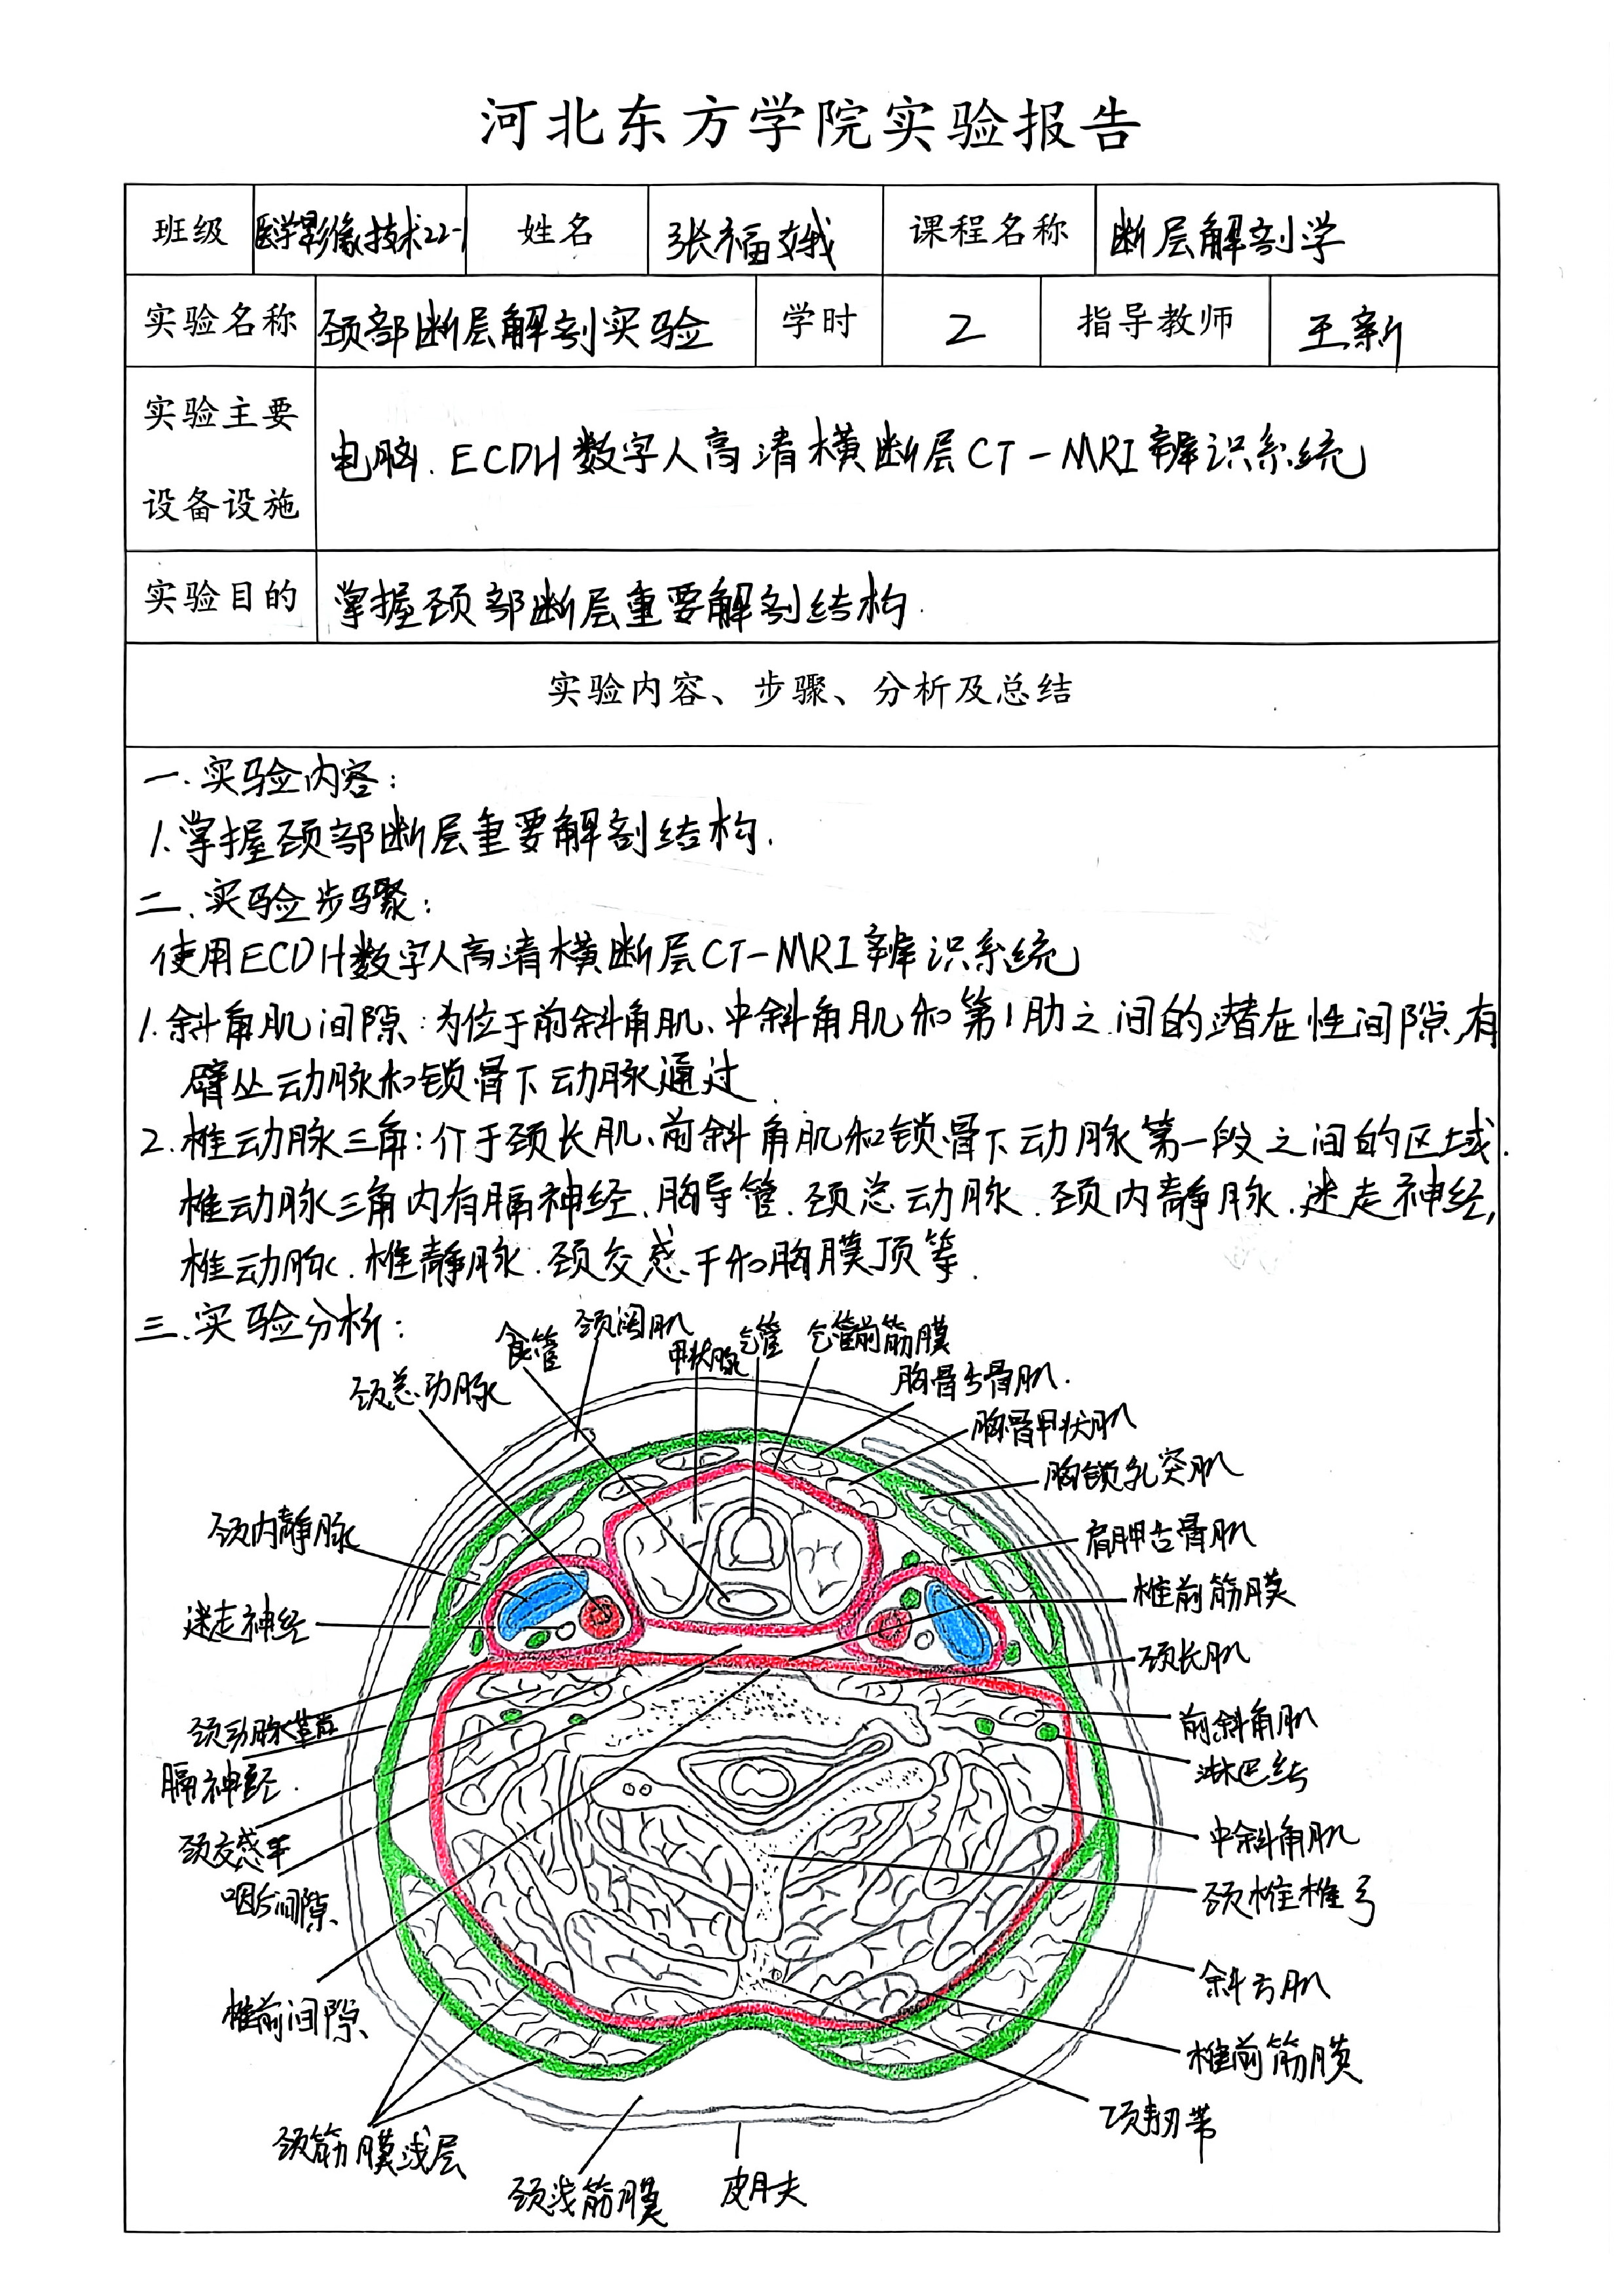 河北东方学院实验报告
班级 医学影像技术22-1 姓名 张福娥 课程名称 断层解剖学
实验名称 颈部断层解剖实验 学时 2 指导教师 王新
实验主要
设备设施
电脑、ECDH数字人高清横断层CT-MRI辨识系统
实验目的 掌握颈部断层重要解剖结构.
实验内容、步骤、分析及总结
一.实验内容:
1.掌握颈部断层重要解剖结构.
二.实验步骤:
使用ECDH数字人高清横断层CT-MRI辨识系统
1.斜角肌间隙:为位于前斜角肌、中斜角肌和第1肋之间的潜在性间隙,有
臂丛动脉和锁骨下动脉通过.
2.椎动脉三角:介于颈长肌、前斜角肌和锁骨下动脉第一段之间的区域.
椎动脉三角内有膈神经、胸导管.颈总动脉.颈内静脉.迷走神经,
椎动脉.椎静脉.颈交感干和胸膜顶等.
三.实验分析:
颈总动脉
食管
颈阔肌
甲状腺
气管
气管前筋膜
胸骨舌骨肌.
胸骨甲状肌
胸锁乳突肌
肩胛舌骨肌
椎前筋膜
颈长肌
前斜角肌
淋巴结
中斜角肌
颈椎椎弓
斜方肌
椎前筋膜
项韧带
颈内静脉
迷走神经
颈动脉鞘
膈神经.
颈交感干
咽后间隙
椎前间隙
颈筋膜浅层
颈浅筋膜
皮肤